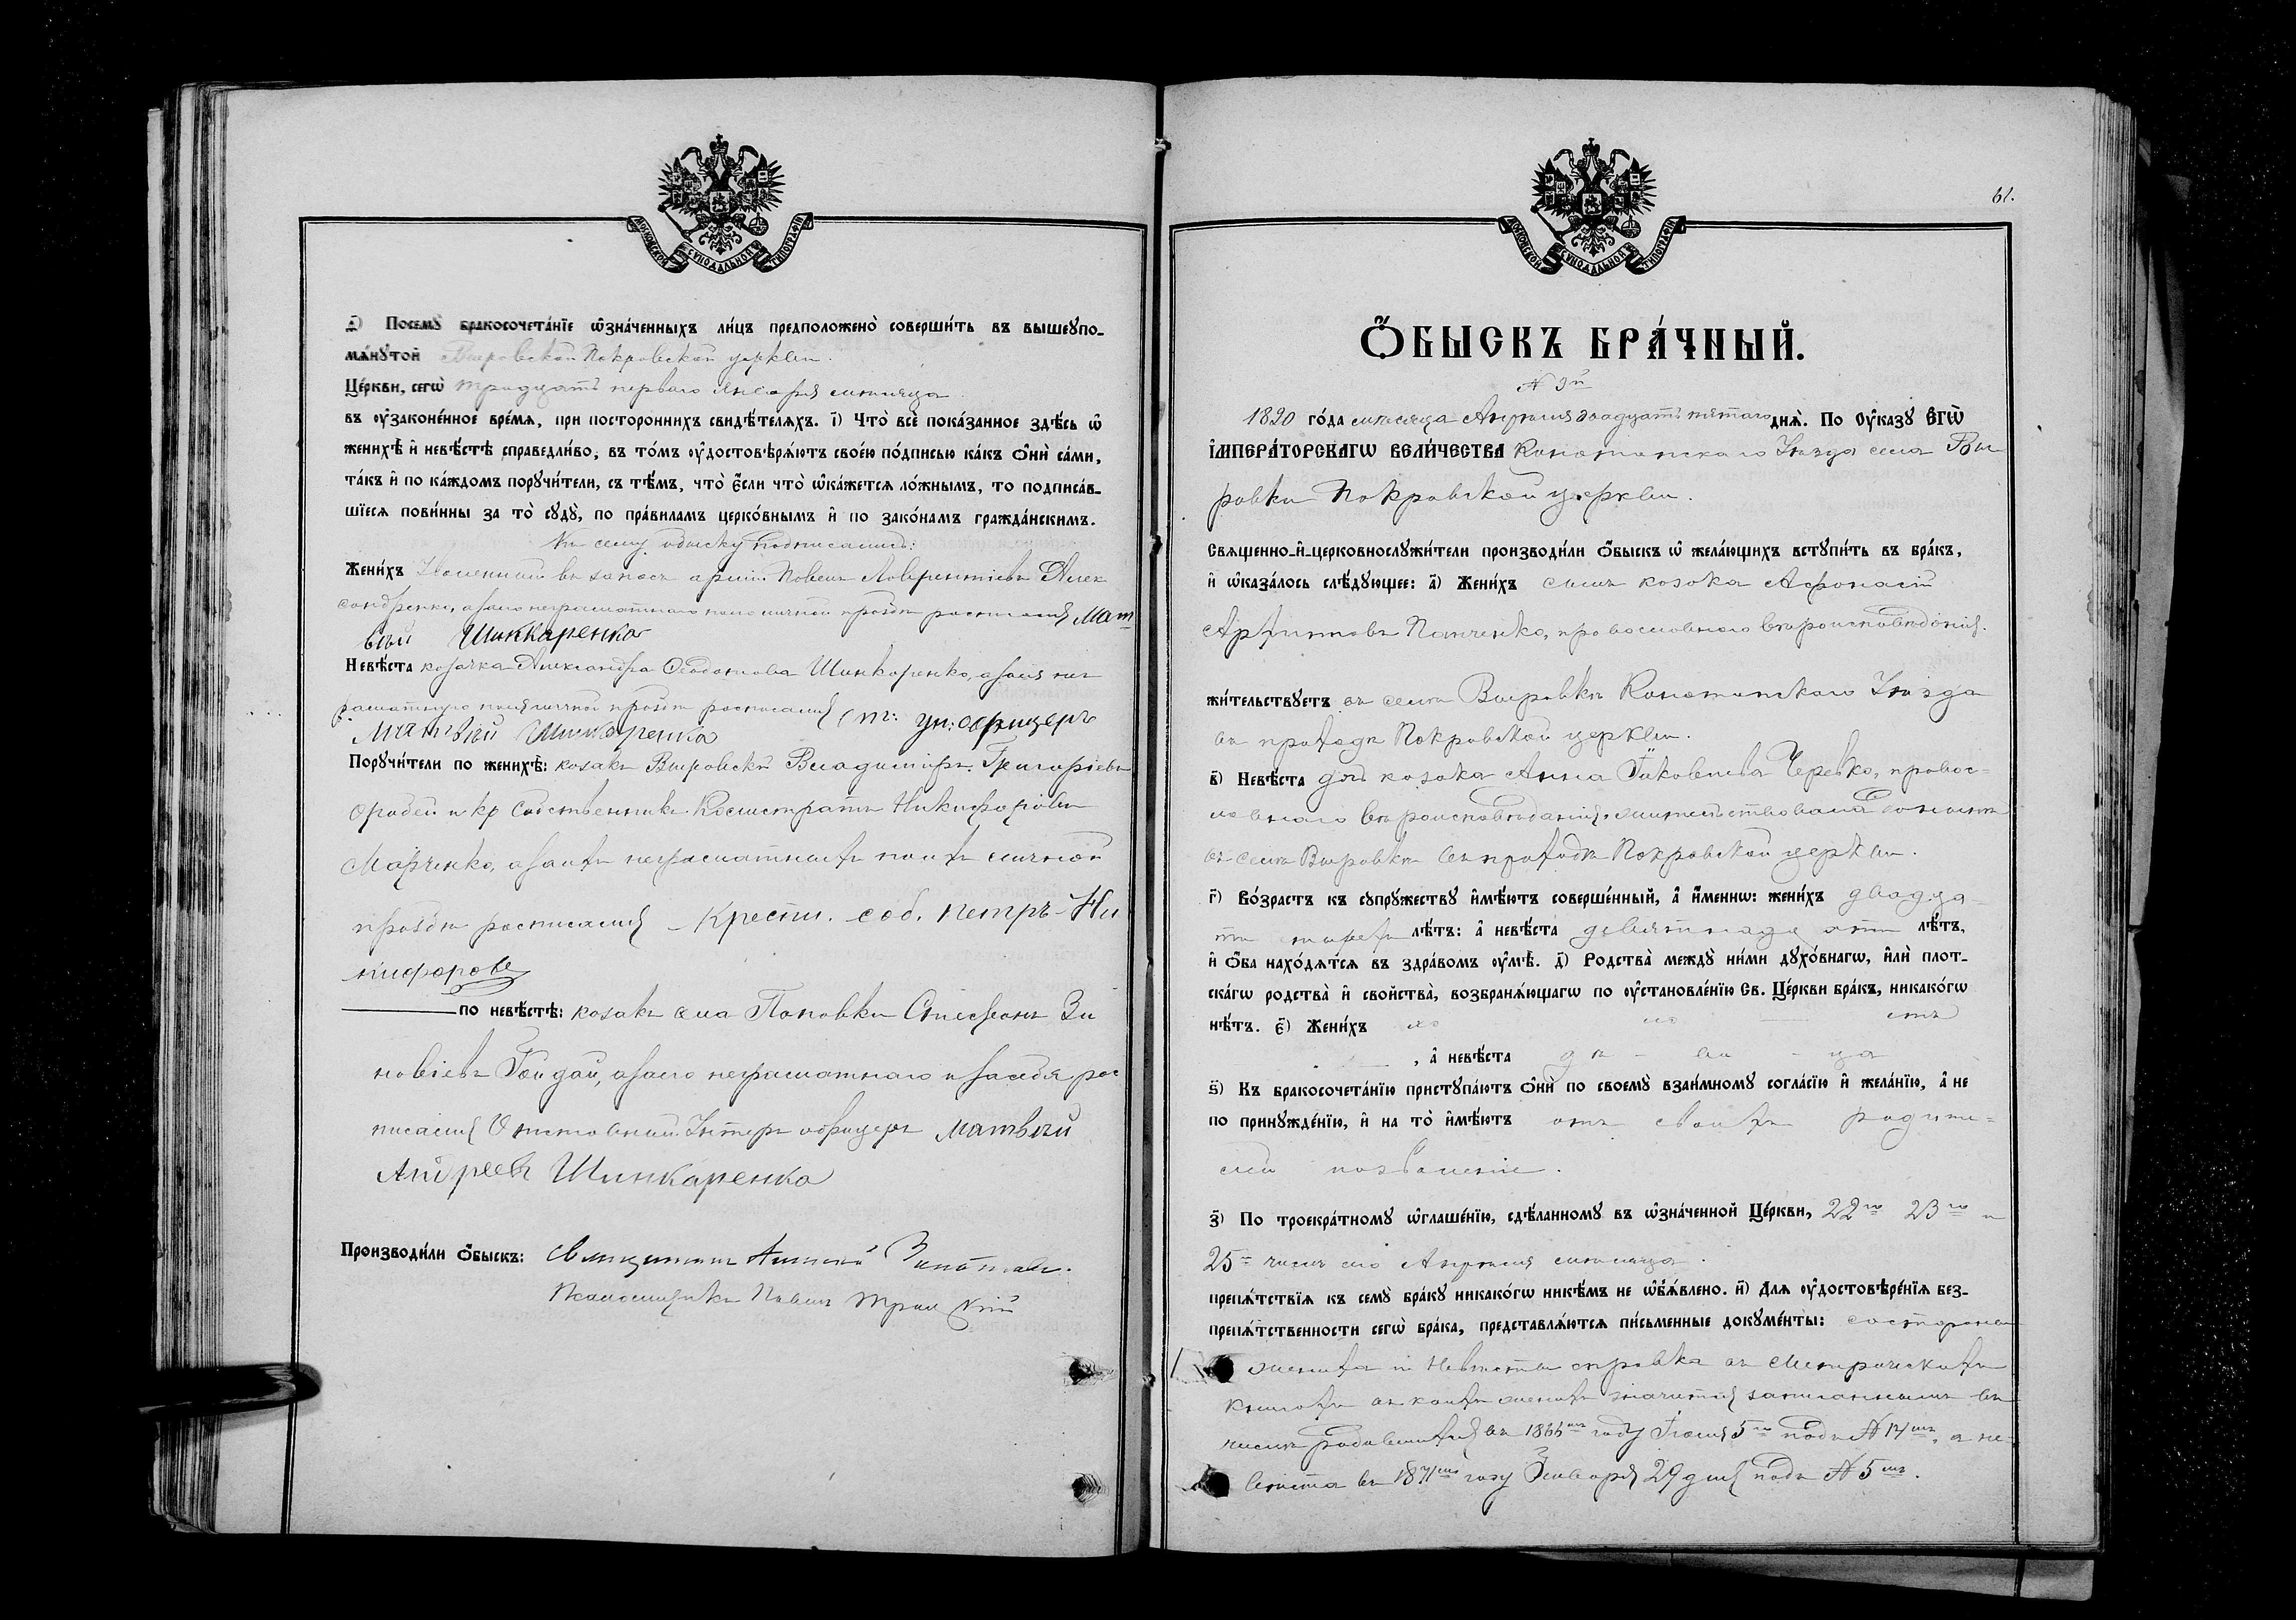 МОСКОВСКОЙ СѴНОДАЛЬНОЙ ТИПОГРАФІИ
д҃) Посемꙋ бракосочета́нїе ѡ҆зна́ченныхъ ли́цъ предположено̀ соверши́ть въ вышеꙋпо-
мѧ́нꙋтой Выровской Покровской церкви.
Це́ркви, сегѡ̀ тридцать перваго Января мѣсяца
въ ᲂу҆зако́ненное вре́мѧ, при посторо́ннихъ свидѣ́телѧхъ. і҃) Что̀ всѐ пока́занное здѣ́сь ѡ҆
женихѣ̀ и҆ невѣ́стѣ справедли́во, въ то́мъ ᲂу҆достовѣрѧ́ютъ свое́ю по́дписью ка́къ ѻ҆нѝ са́ми,
та́къ и҆ по ка́ждомъ порꙋчи́тели, съ тѣ́мъ, что̀ є҆́сли что̀ ѡ҆ка́жетсѧ ло́жнымъ, то подписа́в-
шїесѧ пови́нны за то̀ сꙋдꙋ̀, по пра́виламъ церко́внымъ и҆ по зако́намъ гражда́нскимъ.
Къ сему обыску подписались:
Жени́хъ Уволенный въ запасъ арміи Павелъ Лаврентіевъ Алек
сандренко, а за него неграмотнаго по его личной прозьбѣ росписался Мат
вѣй Шинкаренко
Невѣ́ста козачка Александра Ѳеодотова Шинкаренко, а за нея нег
рамотную по ея личной прозьбѣ росписался От: ун. офицеръ
Матвѣй Шинкаренко
Порꙋчи́тели по женихѣ̀: козакъ Выровскій Владиміръ Григоріевъ
и кр собственникъ Калистратъ Никифоровъ
Марченко, а за нихъ неграмотныхъ по ихъ личной
прозьбѣ росписался Крестн. соб. Петръ Ни
кифоровъ
по невѣ́стѣ: козакъ села Поповки Стефанъ Зи
новіевъ Гайдай, а за него неграмотнаго и за себя рос
писался Отставный Унтеръ офицеръ Матвѣй
Андреевъ Шинкаренко
Производи́ли ѻ҆́быскъ: Священникъ
Псаломщикъ Павелъ
61.
МОСКОВСКОЙ СѴНОДАЛЬНОЙ ТИПОГРАФІИ
Ѻ҆́БЫСКЪ БРА́ЧНЫЙ.
№ 9й
1890 го́да мѣсяца Апрѣля двадцать пятаго днѧ̀. По Оу҆ка́зꙋ Є҆ГѠ̀
І҆МПЕРА́ТОРСКАГѠ ВЕЛИ́ЧЕСТВА Конотопскаго Уѣзда села Вы
ровки Покровской церкви.
Свѧще́нно-и҆-церковнослꙋжи́тели производи́ли ѻ҆́быскъ ѡ҆ жела́ющихъ встꙋпи́ть въ бра́къ,
и҆ ѡ҆каза́лось слѣ́дꙋющее: а҃) Жени́хъ сынъ козака Афонасій
Архиповъ Панченко, православнаго вѣроисповѣданія.
жи́тельствꙋетъ въ селѣ Выровкѣ Конотопскаго Уѣзда
въ приходѣ Покровской церкви.
в҃) Невѣ́ста дочь козака Анна Іаковлева Черевко, правос=
лавнаго вѣроисповѣданія, жительствовала донынѣ
въ селѣ Выровкѣ въ приходѣ Покровской церкви.
г҃) Во́зрастъ къ сꙋпрꙋ́жествꙋ и҆мѣ́ютъ соверше́нный, а҆ и҆́меннѡ: жени́хъ двадца
ти трехъ лѣ́тъ: а҆ невѣ́ста девятнадцати лѣ́тъ,
и҆ ѻ҆́ба нахо́дѧтсѧ въ здра́вомъ ᲂу҆мѣ̀. д҃) Родства̀ междꙋ̀ ни́ми дꙋхо́внагѡ, и҆лѝ плот-
ска́гѡ родства̀ и҆ сво́йства̀, возбранѧ́ющагѡ по ᲂу҆становле́нїю Св. Це́ркви бра́къ, никако́гѡ
нѣ́тъ. є҃) Жени́хъ хо ло стъ
, а҆ невѣ́ста дѣ - ви - ца
ѕ҃) Къ бракосочета́нїю пристꙋпа́ютъ ѻ҆нѝ по своемꙋ̀ взаи́мномꙋ согла́сїю и҆ жела́нїю, а҆ не
по принꙋжде́нїю, и҆ на то̀ и҆мѣ́ютъ отъ своихъ родите=
лей позволеніе.
з҃) По троекра́тномꙋ ѡ҆глаше́нїю, сдѣ́ланномꙋ въ ѡ҆зна́ченной Це́ркви, 22го 23го и
25го числъ сего Апрѣля мѣсяца.
препѧ́тствїѧ къ семꙋ̀ бра́кꙋ никако́гѡ никѣ́мъ не ѡ҆б̾ѧ́влено. и҃) Длѧ ᲂу҆достовѣре́нїѧ без-
препѧ́тственности сегѡ̀ бра́ка, представлѧ́ютсѧ пи́сьменные докꙋме́нты: состороны
жениха и Невѣсты справка въ Метрическихъ
книгахъ въ коихъ женихъ значится записаннымъ въ
числѣ родившихся въ 1866мъ году Іюля 5го подъ № 14мъ, а не-
вѣста въ 1871мъ году Января 29 дня подъ № 5мъ.